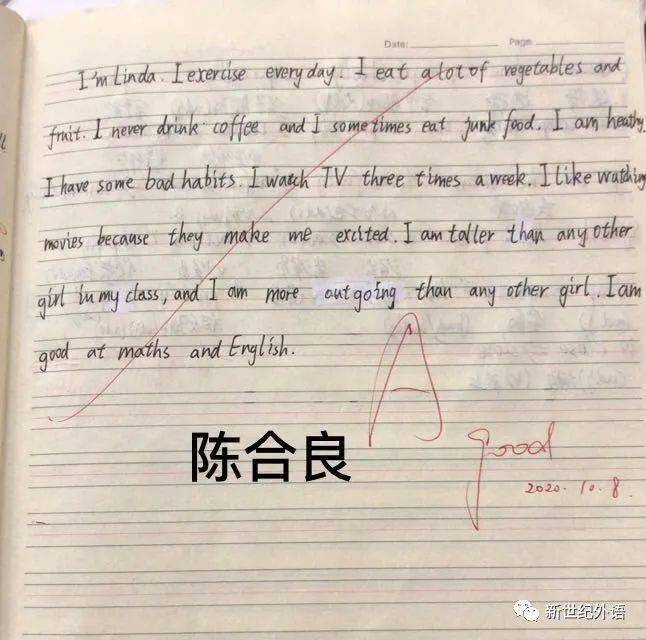 Date: Page
I'm Linda. I exercise everyday. I eat alot of vegetables and
fruit. I never drink coffee and I sometimes eat junk food. I am heathy.
I have some bad habits. I watch TV three times a week. I like watching
movies because they make me excited. I am taller than any other
girl in my class, and I am more outgoing than any other girl. I am
good at maths and English.
A
陈合良
good
2020.10.8.
新世纪外语